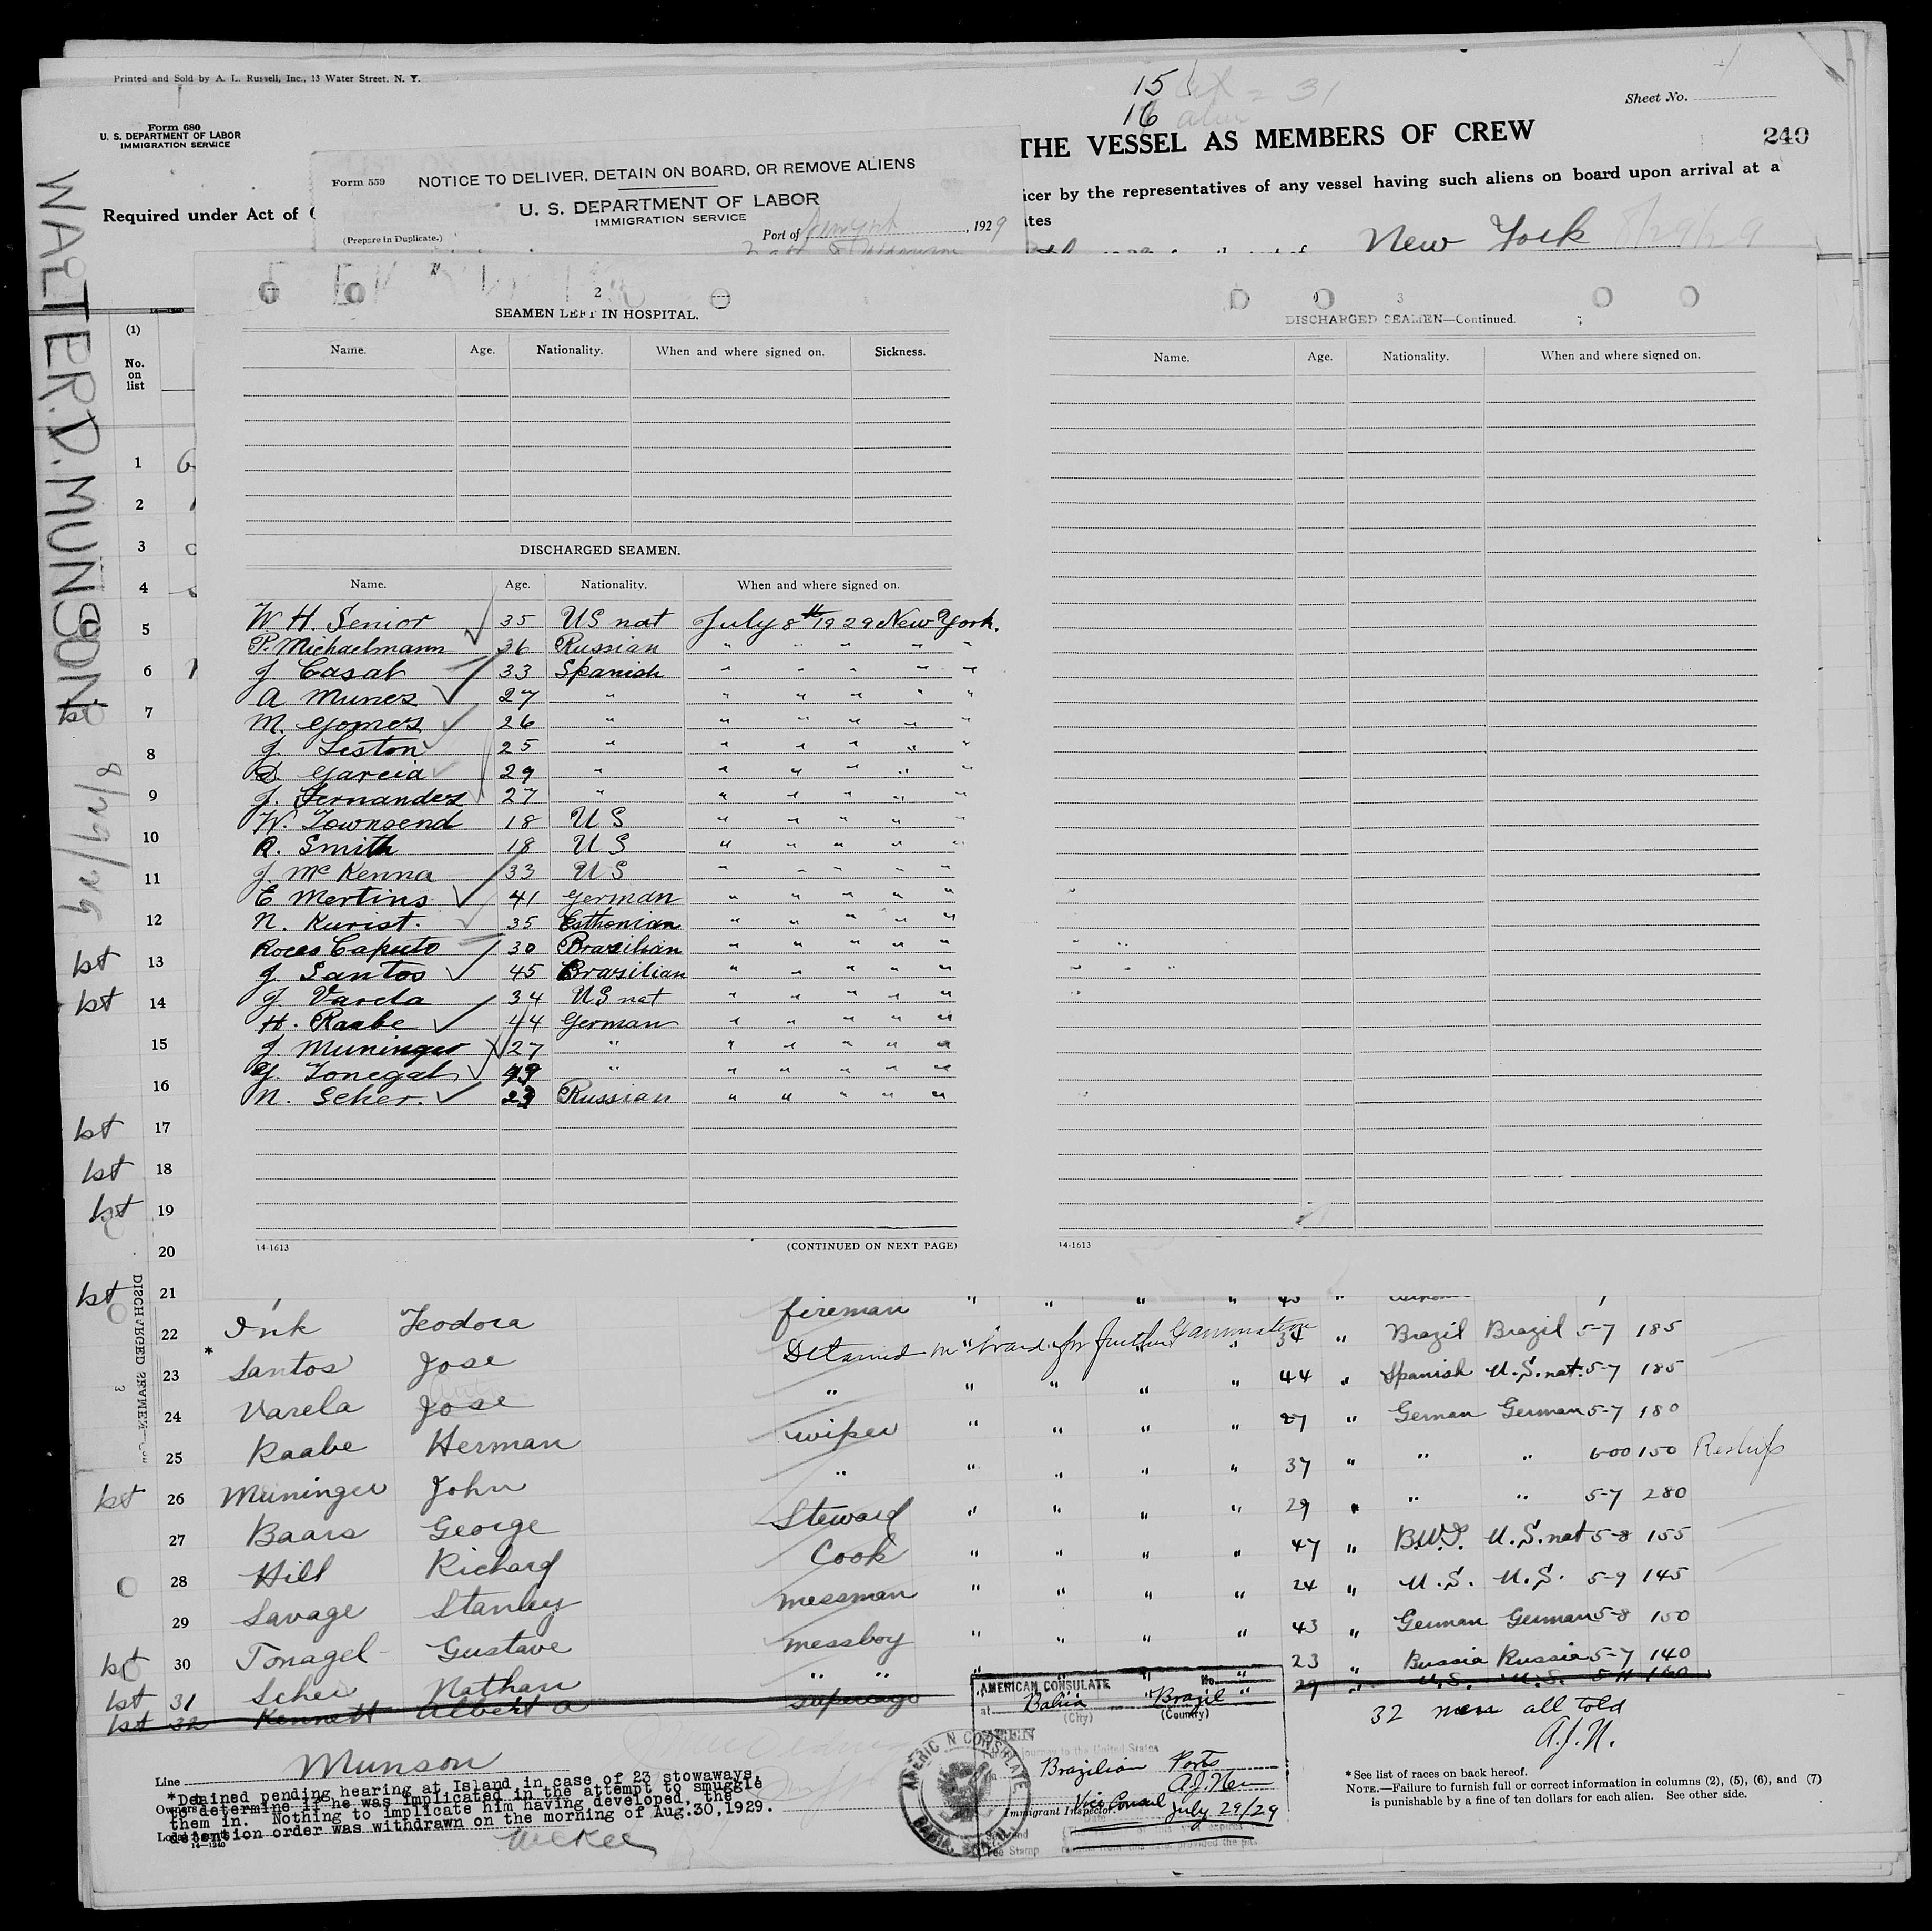 Printed and Sold by A. L. Russell, Inc., 13 Water Street, N. Y.
15
16
31
Sheet No.
Form 680
U. S. DEPARTMENT OF LABOR
IMMIGRATION SERVICE
THE VESSEL AS MEMBERS OF CREW
240
Form 559 NOTICE TO DELIVER, DETAIN ON BOARD, OR REMOVE ALIENS
U. S. DEPARTMENT OF LABOR
IMMIGRATION SERVICE
(Prepare in Duplicate.)
Port of New York, 1929
Required under Act of
icer by the representatives of any vessel having such aliens on board upon arrival at a
ites
New York 8/29/29
WALTER.D.MUNSON
8/29/29
(1)
No.
on
list
2
SEAMEN LEFT IN HOSPITAL.
Name. Age. Nationality. When and where signed on. Sickness.
DISCHARGED SEAMEN.
Name. Age. Nationality. When and where signed on.
W. H. Senior 35 US nat July 8th 1929 New York.
P. Michaelmann 36 Russian " " " " "
J Casal 33 Spanish " " " " "
A Munes 27 " " " " " "
M. Gomes 26 " " " " " "
J. Seston 25 " " " " " "
D. Garcia 29 " " " " " "
J. Fernandes 27 " " " " " "
W. Townsend 18 US " " " " "
R. Smith 18 US " " " " "
J. McKenna 33 US " " " " "
E Mertins 41 German " " " " "
N. Kurist. 35 Esthonian " " " " "
Rocco Caputo 30 Brazilian " " " " "
J. Santos 45 Brazilian " " " " "
J. Varela 34 US nat " " " " "
H. Raabe 44 German " " " " "
J. Muninger 27 " " " " " "
G. Tonegal 49 " " " " " "
N. Scher. 23 Russian " " " " "
14-1613 (CONTINUED ON NEXT PAGE)
3
DISCHARGED SEAMEN—Continued.
Name. Age. Nationality. When and where signed on.
14-1613
1
2
3
4
5
6
1st 7
8
9
10
11
12
1st 13
1st 14
15
16
1st 17
1st 18
1st 19
20
1st 21
DISCHARGED SEAMEN
3
22 Ink Teodora fireman " " " "
* 23 Santos Jose Detained on board for further Examination 34 " Brazil Brazil 5-7 185
24 Varela Jose " " " " " 44 " Spanish U.S. nat. 5-7 185
25 Raabe Herman wiper " " " " 27 " German German 5-7 180
1st 26 Muninger John " " " " " 37 " " " 600 150 Reships
27 Baars George Steward " " " " 29 " " " 5-7 280
28 Hill Richard Cook " " " " 47 " B.W.I. U.S. nat 5-8 155
29 Savage Stanley messman " " " " 24 " U.S. U.S. 5-9 145
1st 30 Tonagel Gustave messboy " " " " 43 " German German 5-8 150
1st 31 Scher Nathan " " 23 " Russia Russia 5-7 140
1st 32 Kennett Albert A supercargo 29 " U.S. U.S. 5-11 160
32 men all told
A.J.N.
AMERICAN CONSULATE No.
at Bahia Brazil
(City) (Country)
SEEN
journey to the United States
Brazilian Ports
Vice Consul July 29/29
Immigrant Inspector
Date
Fee Stamp
AMERICAN CONSULATE
BAHIA, BRAZIL
Line Munson
*Detained pending hearing at Island in case of 23 stowaways,
to determine if he was implicated in the attempt to smuggle
them in. Nothing to implicate him having developed, the
detention order was withdrawn on the morning of Aug.30,1929.
Owners
Local Agents
14—1240
*See list of races on back hereof.
NOTE.—Failure to furnish full or correct information in columns (2), (5), (6), and (7)
is punishable by a fine of ten dollars for each alien. See other side.